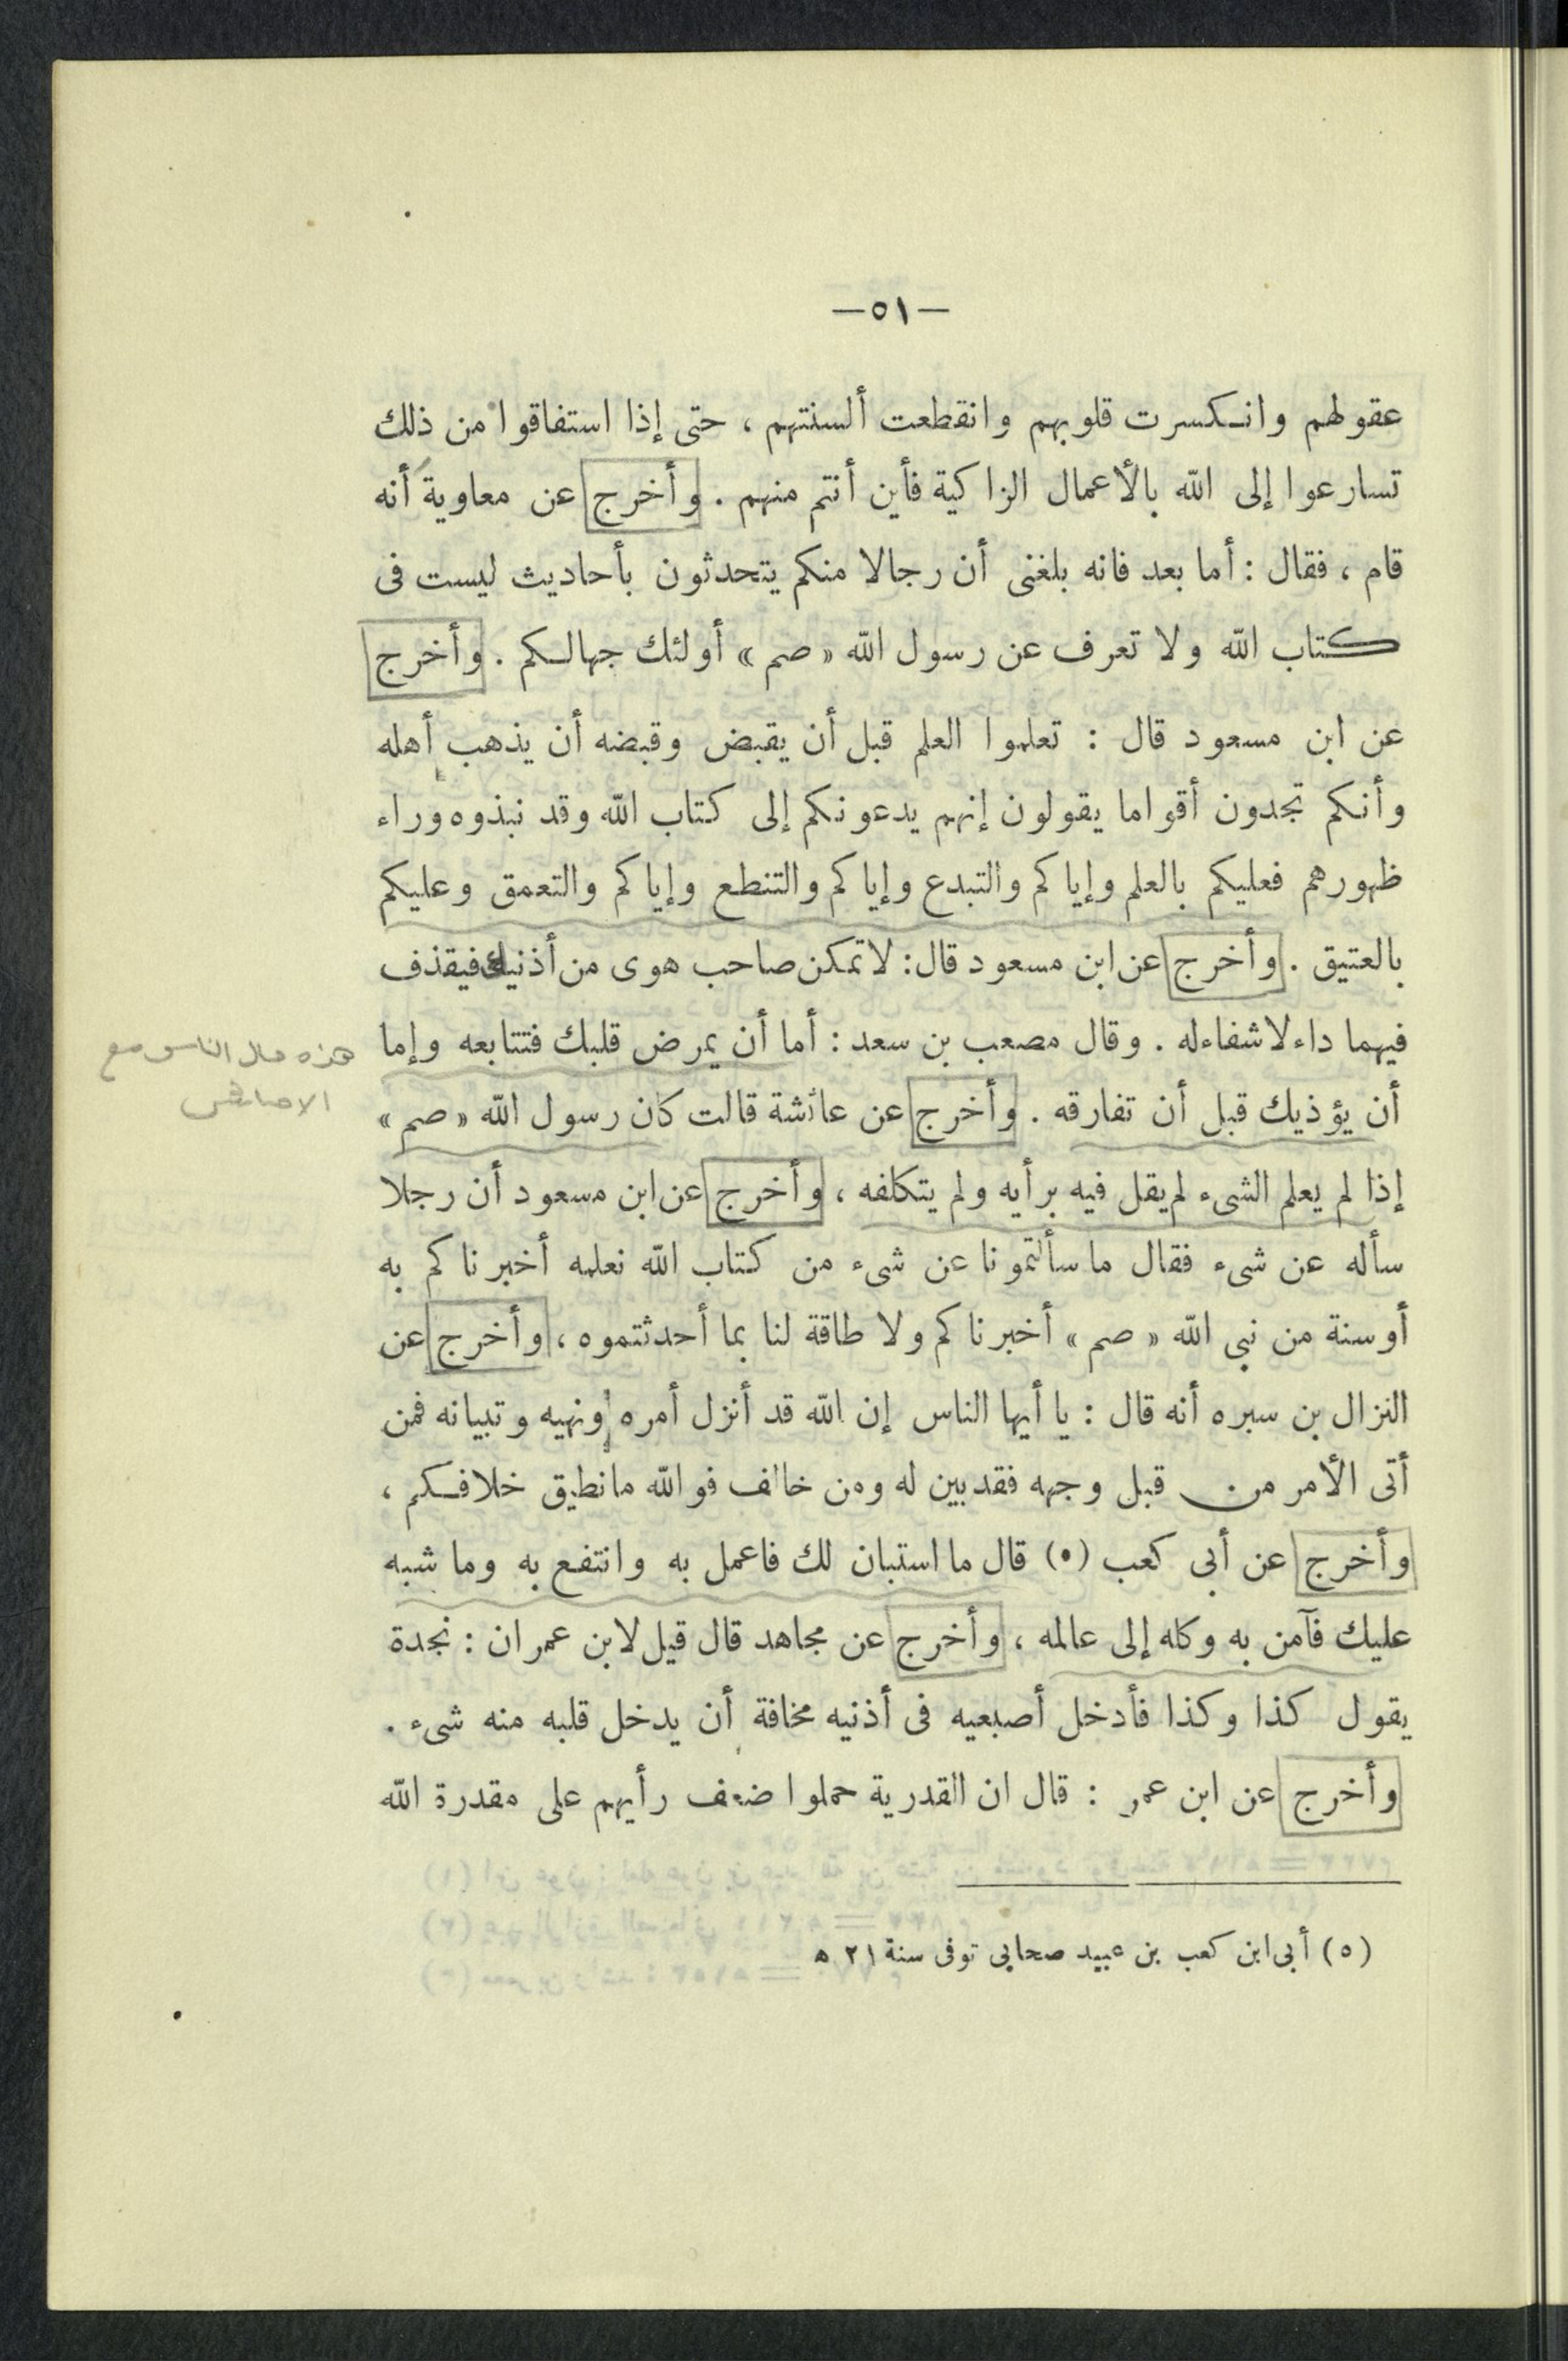 —٥١—
عقولهم وانكسرت قلوبهم وانقطعت ألسنتهم ، حتى إذا استفاقوا من ذلك
تسارعوا إلى الله بالأعمال الزاكية فأين أنتم منهم . وأخرج عن معاوية أنه
قام ، فقال : أما بعد فانه بلغنى أن رجالا منكم يتحدثون بأحاديث ليست فى
كتاب الله ولا تعرف عن رسول الله « صم » أولئك جهالكم . وأخرج
عن ابن مسعود قال : تعلموا العلم قبل أن يقبض وقبضه أن يذهب أهله
وأنكم تجدون أقواما يقولون إنهم يدعونكم إلى كتاب الله وقد نبذوه وراء
ظهورهم فعليكم بالعلم وإياكم والتبدع وإياكم والتنطع وإياكم والتعمق وعليكم
بالعتيق . وأخرج عن ابن مسعود قال : لا تمكن صاحب هوى من أذنيك فيقذف
فيهما داء لا شفاء له . وقال مصعب بن سعد : أما أن يمرض قلبك فتتابعه وإما
هذه حال الناس مع
أن يؤذيك قبل أن تفارقه . وأخرج عن عائشة قالت كان رسول الله « صم »
إذا لم يعلم الشىء لم يقل فيه برأيه ولم يتكلفه ، وأخرج عن ابن مسعود أن رجلا
سأله عن شىء فقال ما سألتمونا عن شىء من كتاب الله نعلمه أخبرناكم به
أو سنة من نبى الله « صم » أخبرناكم ولا طاقة لنا بما أحدثتموه ، وأخرج عن
النزال بن سبره أنه قال : يا أيها الناس إن الله قد أنزل أمره ونهيه وتبيانه فمن
أتى الأمر من قبل وجهه فقد بين له ومن خالف فوالله ما نطيق خلافكم ،
وأخرج عن أبى كعب (٥) قال ما استبان لك فاعمل به وانتفع به وما شبه
عليك فآمن به وكله إلى عالمه ، وأخرج عن مجاهد قال قيل لابن عمران : نجدة
يقول كذا وكذا فأدخل أصبعيه فى أذنيه مخافة أن يدخل قلبه منه شىء .
وأخرج عن ابن عمر : قال ان القدرية حملوا ضعف رأيهم على مقدرة الله
(٥) أبى ابن كعب بن عبيد صحابى توفى سنة ٢١ ه